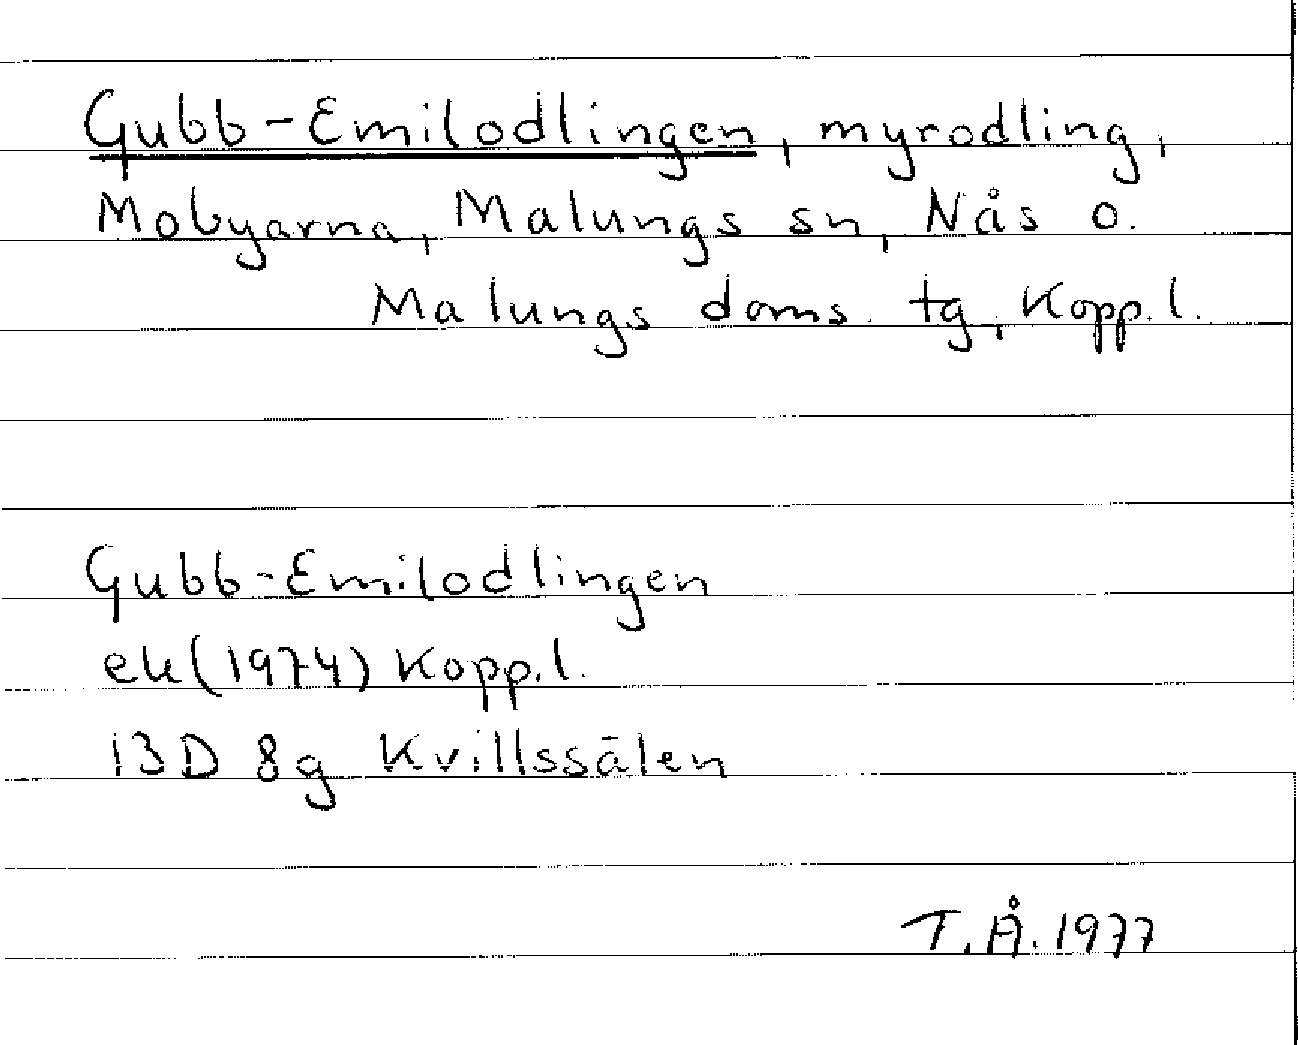 Gubb-Emilodlingen, myrodling,
Mobyarna, Malungs sn, Nås o.
Malungs doms. tg, Kopp. l.
Gubb-Emilodlingen
ek (1974) Kopp. l.
13D 8g Kvillssälen
T.Å. 1977